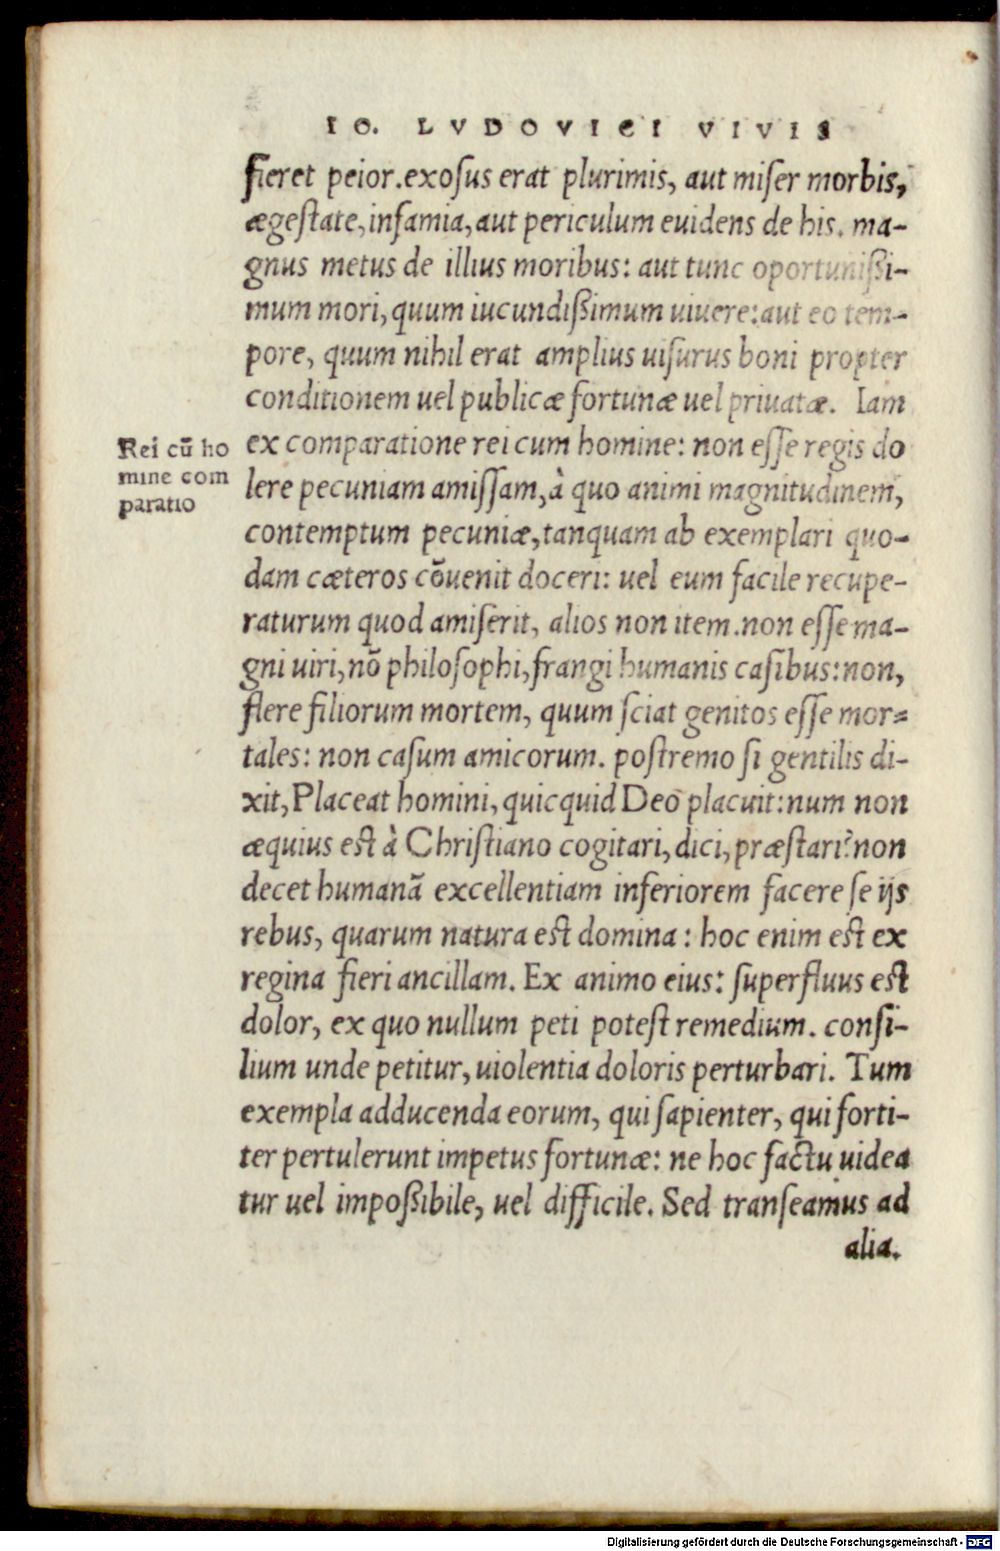 IO. LVDOVICI VIVIS
fieret peior. exosus erat plurimis, aut miser morbis,
ægestate, infamia, aut periculum euidens de his. ma-
gnus metus de illius moribus: aut tunc oportunißi-
mum mori, quum iucundißimum uiuere: aut eo tem-
pore, quum nihil erat amplius uisurus boni propter
conditionem uel publicæ fortunæ uel priuatæ. Iam
Rei cū ho
mine com
paratio
ex comparatione rei cum homine: non esse regis do
lere pecuniam amissam, à quo animi magnitudinem,
contemptum pecuniæ, tanquam ab exemplari quo-
dam cæteros cōuenit doceri: uel eum facile recupe-
raturum quod amiserit, alios non item. non esse ma-
gni uiri, nō philosophi, frangi humanis casibus: non,
flere filiorum mortem, quum sciat genitos esse mor-
tales: non casum amicorum. postremo si gentilis di-
xit, Placeat homini, quicquid Deo placuit: num non
æquius est à Christiano cogitari, dici, præstari? non
decet humanā excellentiam inferiorem facere se ijs
rebus, quarum natura est domina: hoc enim est ex
regina fieri ancillam. Ex animo eius: superfluus est
dolor, ex quo nullum peti potest remedium. consi-
lium unde petitur, uiolentia doloris perturbari. Tum
exempla adducenda eorum, qui sapienter, qui forti-
ter pertulerunt impetus fortunæ: ne hoc factu uidea
tur uel impoßibile, uel difficile. Sed transeamus ad
alia.
Digitalisierung gefördert durch die Deutsche Forschungsgemeinschaft - DFG